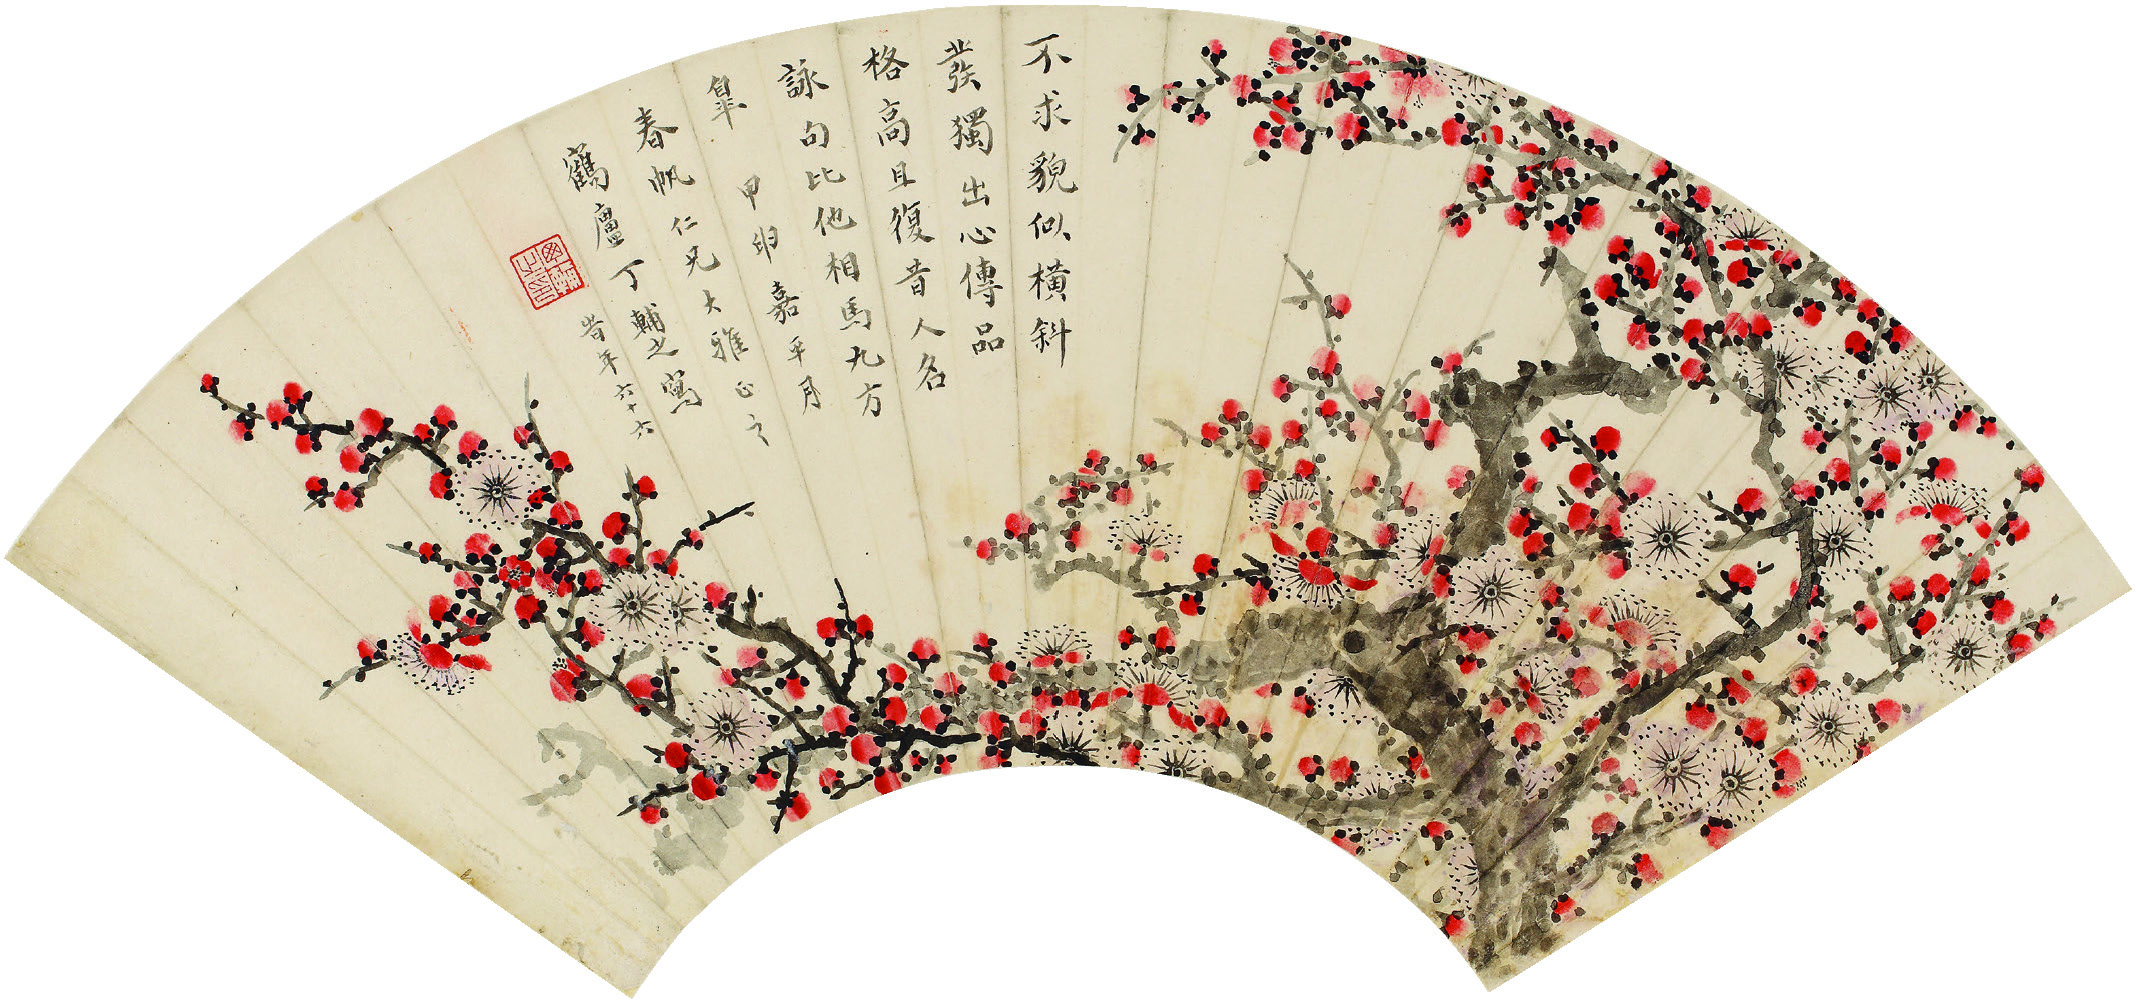 不求貌似橫斜
發獨出心傳品
格高且復昔人名
詠句比他相馬九方
皐 甲申嘉平月
春帆仁兄大雅正之
鶴廬丁輔之寫
旹年六十六